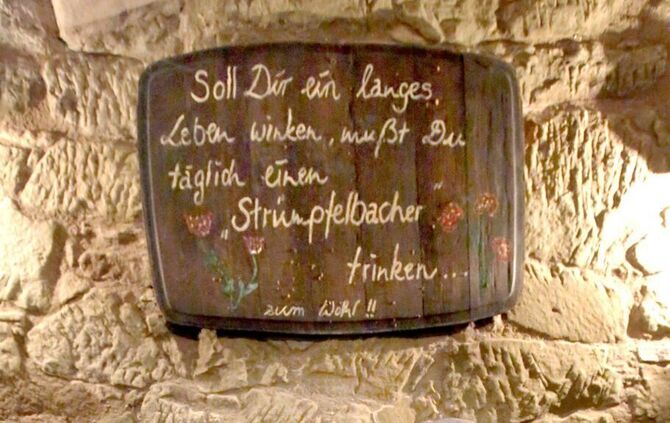 Soll Dir ein langes
Leben winken, mußt Du
täglich einen
„Strümpfelbacher"
trinken...
zum Wohl!!